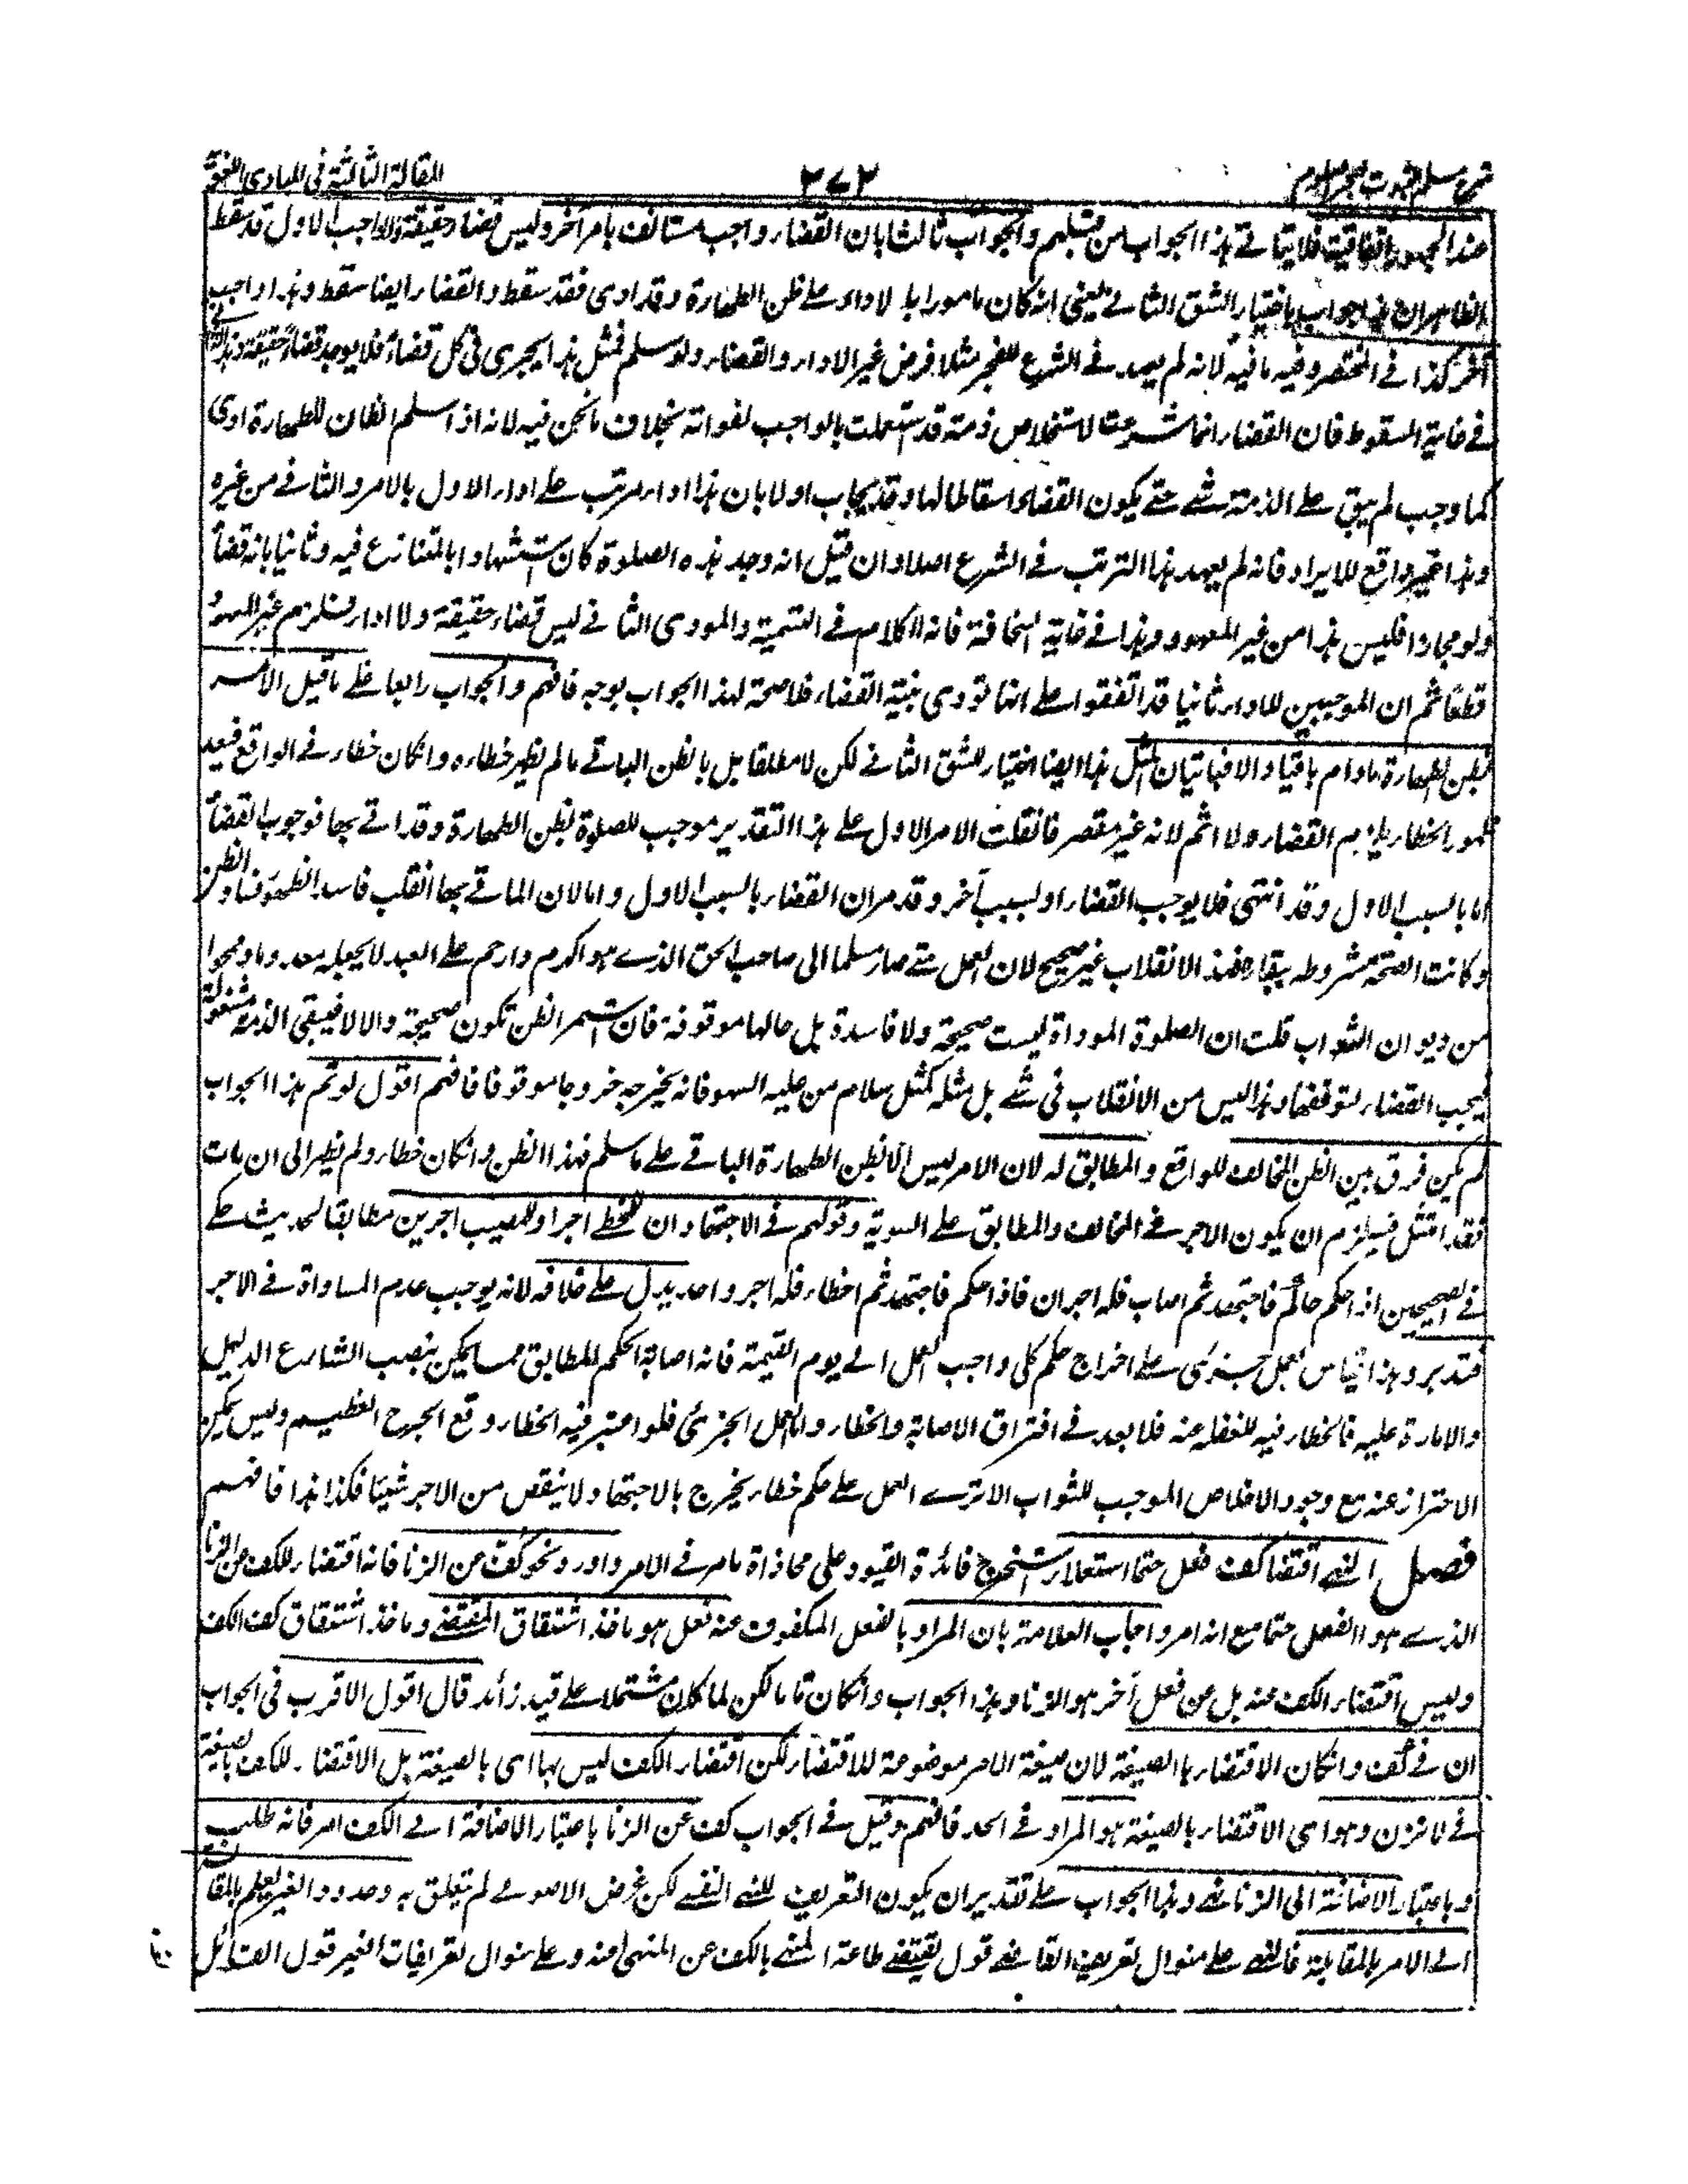 شرح مسلم الثبوت لبحر العلوم ٢٧٢ المقالة الثالثة في المبادي اللغوية
عند الجمهور اتفاقية فلا يتأتى هذا الجواب من قبلهم والجواب ثالثا بان القضاء واجب مستانف بامر آخر وليس قضاء حقيقة والواجب الاول قد سقط
الظاهر ان هذا جواب باختيار الشق الثاني يعني انه كان مامورا بالاداء على ظن الطهارة وقد ادى فقد سقط والقضاء ايضا سقط وهذا واجب
آخر كذا في المختصر وفيه ما فيه لانه لم يعهد في الشرع للفجر مثلا فرض غير الاداء والقضاء ولو سلم فمثل هذا يجرى في كل قضاء فلا يوجد قضاء حقيقة وهذا
في غاية السقوط فان القضاء انما شرعت لاستخلاص ذمته قد اشتغلت بالواجب لفواته بخلاف ما نحن فيه لانه اذا سلم الظان للطهارة ادى
كما وجب لم يبق على الذمة شے حتے يكون القضاء اسقاطا لها وقد يجاب اولا بان هذا اداء مرتب على اداء الاول بالامر والثاني من غيره
وهذا غير واقع للايراد فانه لم يعهد هذا الترتب في الشرع اصلا وان قيل انه وجد هذه الصلوة كان استشهادا بالمتنازع فيه وثانيا بانه قضاء
ولو مجازا فليس هذا من غير المعهود وهذا في غاية السخافة فانه لا كلام في التسمية والمودى الثاني ليس قضاء حقيقة ولا اداء فلزم غير المعهود
قطعا ثم ان الموجبين للاداء ثانيا قد اتفقوا على انها تودى بنية القضاء فلا صحة لهذا الجواب بوجه فافهم والجواب رابعا على ما قيل الامر
بظن الطهارة ما دام باقيا والا فباتيان المثل هذا ايضا اختيار للشق الثاني لكن لا مطلقا بل بالظن الباقي ما لم يظهر خطاءه وانكان خطاء في الواقع فبعد
ظهور الخطاء يلزم القضاء ولا اثم لانه غير مقصر فانقلت الامر الاول على هذا التقدير موجب للصلوة بظن الطهارة وقد اتى بها فوجوب القضاء
اما بالسبب الاول وقد انتهى فلا يوجب القضاء او لسبب آخر وقد مر ان القضاء بالسبب الاول واما لان الماتي بها انقلب فاسدا لظهور فساد الظن
وكانت الصحة مشروطه ببقاءه فهذ الانقلاب غير صحيح لان العمل متے صار مسلما الى صاحب الحق الذے هو اكرم وارحم على العبد لا يجعله معدوما وممحوا
من ديوان الثواب قلت ان الصلوة المودوة ليست صحيحة ولا فاسدة بل حالها موقوفة فان استمر الظن تكون صحيحة والا لا فيبقى الذمة مشغولة
فيجب القضاء لتوقفها وهذا ليس من الانقلاب في شے بل مثله كمثل سلام من عليه السهو فانه يخرجه خروجا موقوفا فافهم اقول لو تم هذا الجواب
لم يكن فرق بين الظن المخالف للواقع والمطابق له لان الامر ليس الا بظن الطهارة الباقي على ما سلم فهذا الظن وانكان خطاء ولم يظهر الى ان مات
فقد امتثل فيلزم ان يكون الاجر في المخالف والمطابق على السوية وقولهم في الاجتهاد ان للمخطے اجرا وللمصيب اجرين مطابقا لحديث على
في الصحيحين اذا حكم حاكم فاجتهد ثم اصاب فله اجران فاذا حكم فاجتهد ثم اخطاء فله اجر واحد يدل على خلافه لانه يوجب عدم المساواة في الاجر
فتدبر وهذا قياس لعمل جزئى على اخراج حكم كلى واجب العمل الى يوم القيمة فانه اصابة الحكم المطابق مما يمكن بنصب الشارع الدليل
والامارة عليه فالخطاء فيه للغفلة عنه فلا بعد في افتراق الاصابة والخطاء واما العمل الجزئى فلو اعتبر فيه الخطاء وقع الجرح العظيم وليس يمكن
الاحتراز عنه مع وجود الاخلاص الموجب للثواب الا ترے العمل على حكم خطاء يخرج بالاجتهاد لا ينقص من الاجر شيئا فكذا هذا فافهم
فصل النهے اقتضاء كف فعل حتما استعلاء استخرج فائدة القيود على محاذاة ما مر في الامر واورد نحو كف من الزنا فانه اقتضاء للكف عن الزنا
الذے هو الفعل حتما مع انه امر واجاب العلامة بان المراد بالفعل المكفوف عنه فعل هو ماخذ اشتقاق المقتضے وماخذ اشتقاق كف الكف
وليس اقتضاء الكف عنه بل عن فعل آخر هو الزنا وهذا الجواب وانكان تاما لكن لما كان مشتملا على قيد زائد قال اقول الاقرب في الجواب
ان في كف وانكان الاقتضاء بالصيغة لان صيغة الامر موضوعة للاقتضاء لكن اقتضاء الكف ليس بها اى بالصيغة بل الاقتضاء للكف بالصيغة
في لا تزن وهو اى الاقتضاء بالصيغة هو المراد في الحد فافهم وقيل في الجواب كف عن الزنا باعتبار الاضافة الى الكف امر فانه طلب
وباعتبار الاضافة الى الزنا نهے وهذا الجواب على تقدير ان يكون التعريف للنهے النفسے لكن غرض الاصولے لم يتعلق به وحدود الغير يعلم بالمقايسة
الى الامر بالمقابلة فالنهے على منوال تعريف القاضے قول يقتضے طاعة المنهے بالكف عن المنهى عنه وعلى منوال تعريفات الغير قول القائل